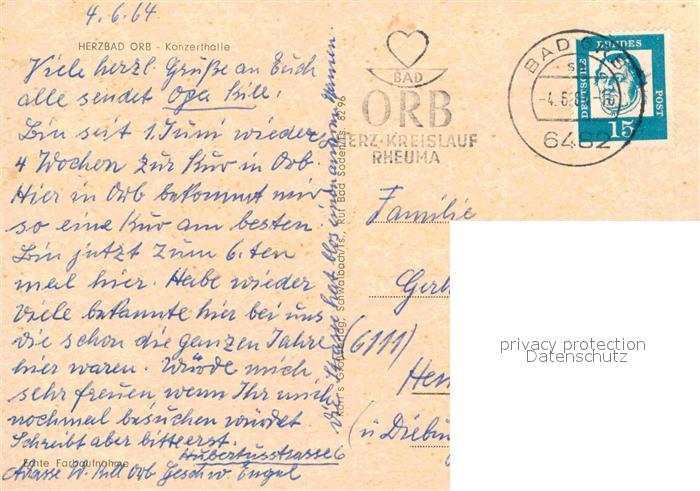 4.6.64
HERZBAD ORB - Konzerthalle
Viele herzl. Grüße an Euch
alle sendet Opa Kill.
Bin seit 1. Juni wieder
4 Wochen zur Kur in Orb.
Hier in Orb bekommt mir
so eine Kur am besten.
Bin jetzt zum 6.ten
mal hier. Habe wieder
viele bekannte hier bei uns
die schon die ganzen Jahre
hier waren. Würde mich
sehr freuen, wenn Ihr mich
nochmal besuchen würdet
Schreibt aber bitte erst.
Echte Farbaufnahme
Hubertusstrasse 6
Adresse W. Kill Orb Geschw. Engel
die Strasse hat blos einen anderen Namen.
Verlag, Schwalbach/Ts., Ruf Bad Soden/Ts. 8296
BAD
ORB
HERZ-KREISLAUF
RHEUMA
BAD ORB
-4.6.
6482
DEUTSCHE
BUNDES
POST
15
Familie
Gerh
(6111)
(ü Diebu
privacy protection
Datenschutz